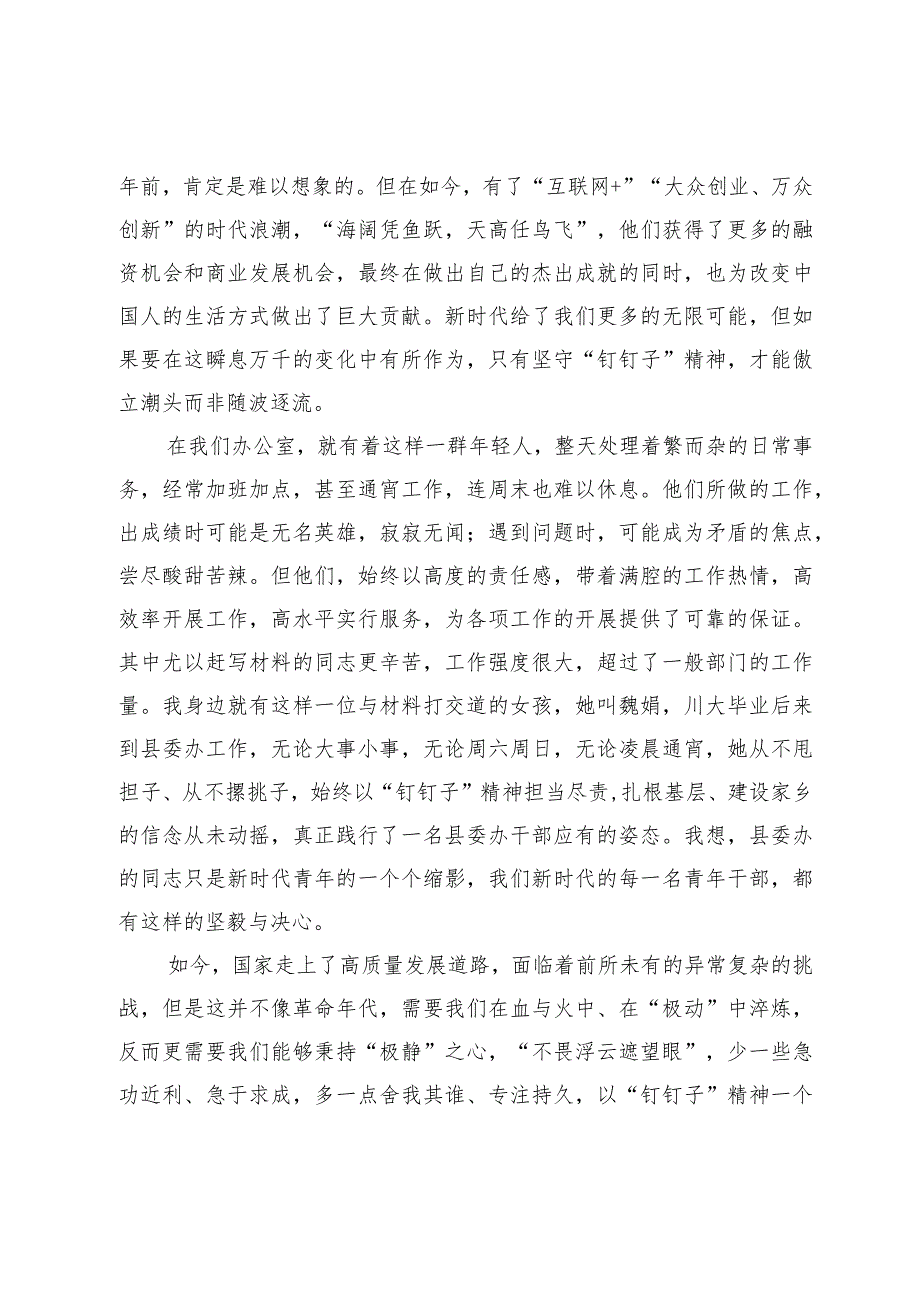 年前，肯定是难以想象的。但在如今，有了“互联网+”“大众创业、万众
创新”的时代浪潮，“海阔凭鱼跃，天高任鸟飞”，他们获得了更多的融
资机会和商业发展机会，最终在做出自己的杰出成就的同时，也为改变中
国人的生活方式做出了巨大贡献。新时代给了我们更多的无限可能，但如
果要在这瞬息万千的变化中有所作为，只有坚守“钉钉子”精神，才能傲
立潮头而非随波逐流。
在我们办公室，就有着这样一群年轻人，整天处理着繁而杂的日常事
务，经常加班加点，甚至通宵工作，连周末也难以休息。他们所做的工作，
出成绩时可能是无名英雄，寂寂无闻；遇到问题时，可能成为矛盾的焦点，
尝尽酸甜苦辣。但他们，始终以高度的责任感，带着满腔的工作热情，高
效率开展工作，高水平实行服务，为各项工作的开展提供了可靠的保证。
其中尤以赶写材料的同志更辛苦，工作强度很大，超过了一般部门的工作
量。我身边就有这样一位与材料打交道的女孩，她叫魏娟，川大毕业后来
到县委办工作，无论大事小事，无论周六周日，无论凌晨通宵，她从不甩
担子、从不摞挑子，始终以“钉钉子”精神担当尽责,扎根基层、建设家乡
的信念从未动摇，真正践行了一名县委办干部应有的姿态。我想，县委办
的同志只是新时代青年的一个个缩影，我们新时代的每一名青年干部，都
有这样的坚毅与决心。
如今，国家走上了高质量发展道路，面临着前所未有的异常复杂的挑
战，但是这并不像革命年代，需要我们在血与火中、在“极动”中淬炼，
反而更需要我们能够秉持“极静”之心，“不畏浮云遮望眼”，少一些急
功近利、急于求成，多一点舍我其谁、专注持久，以“钉钉子”精神一个